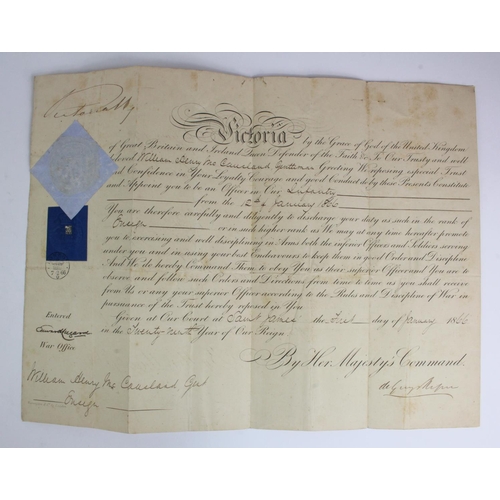 Victoria R
Victoria by the Grace of God of the United Kingdom
of Great Britain and Ireland Queen Defender of the Faith &c. To Our Trusty and well
beloved William Henry Mc Causland Gentleman Greeting We reposing especial Trust
and Confidence in Your Loyalty Courage and good Conduct do by these Presents Constitute
and Appoint you to be an Officer in Our Infantry
from the 12th January 1866
You are therefore carefully and diligently to discharge your duty as such in the rank of
Ensign or in such higher rank as We may at any time hereafter promote
you to exercising and well disciplining in Arms both the inferior Officers and Soldiers serving
under you and in using your best Endeavours to keep them in good Order and Discipline
And We do hereby Command Them to obey You as their superior Officer and You are to
observe and follow such Orders and Directions from time to time as you shall receive
from Us or any your superior Officer according to the Rules and Discipline of War in
pursuance of the Trust hereby reposed in You
Given at Our Court at Saint James the First day of January 1866
in the Twenty Ninth Year of Our Reign
Entered
War Office
By Her Majesty's Command.
de Grey & Ripon
William Henry Mc Causland Gent
Ensign